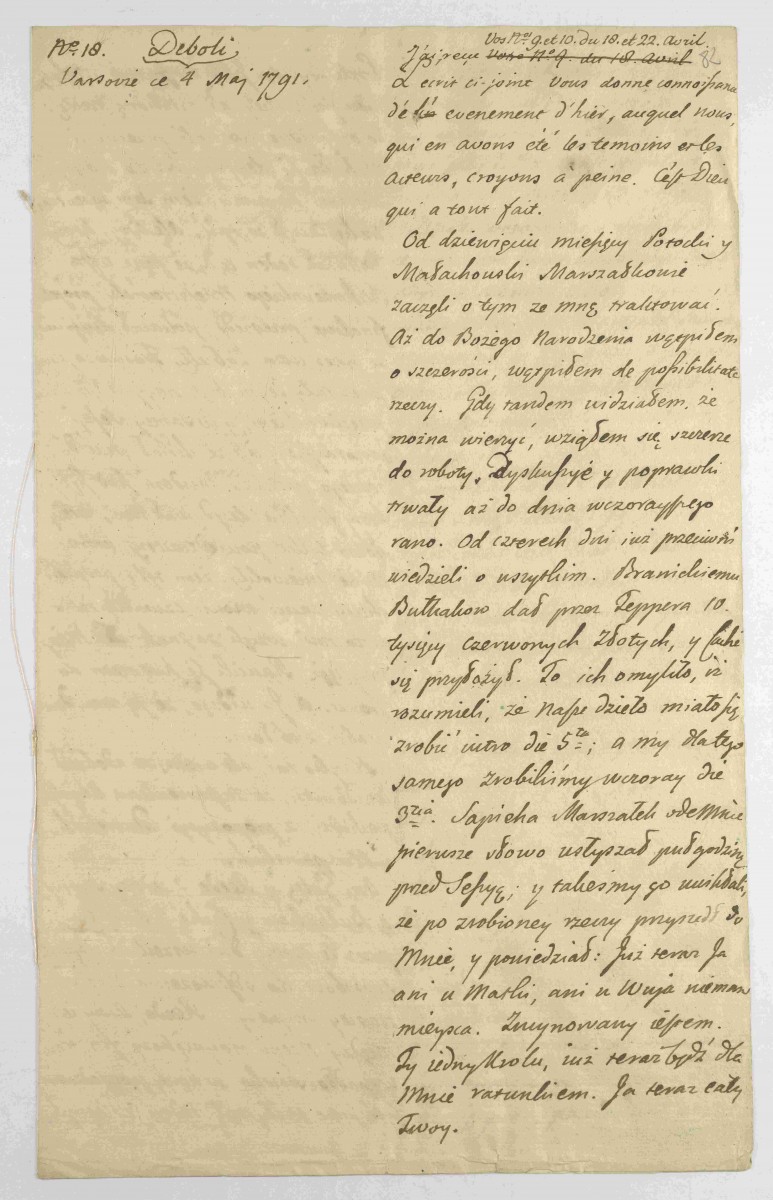 No. 18. Deboli,
Varsovie ce 4 Maj 1791.
Vos Nos. 9. et 10. du 18. et 22. Avril.
J'ai reçu Votre No. 9. du 18. Avril 82
L'ecrit ci-joint Vous donne connoissance
dé evenement d'hier, auquel nous,
qui en avons été les temoins et les
acteurs, croyons à peine. C'est Dieu
qui a tout fait.
Od dziewięciu miesięcy Potocki y
Małachowski Marszałkowie
zaczęli o tym ze mną traktować.
Aż do Bożego Narodzenia wątpiłem
o szczerości, wątpiłem de possibilitate
rzeczy. Gdy tandem widziałem, że
można wierzyć, wziąłem się szczerze
do roboty. Dyskussye y poprawki
trwały aż do dnia wczorayszego
rano. Od czterech dni iuż przeciwni
wiedzieli o wszytkim. Branickiemu
Bułhakow dał przez Teppera 10.
tysięcy czerwonych złotych, y Luchi
się przyłożył. To ich omyliło, iż
rozumieli, że nasze dzieło miało się
zrobić iutro die 5ta; a my dlatego
samego zrobiliśmy wczoray die
3tia. Sapieha Marszałek odemnie
pierwsze słowo usłyszał puł godziną
przed Sessyą; y takeśmy go uwikłali,
że po zrobioney rzeczy przyszedł do
Mnie, y powiedział: Już teraz Ja
ani u Matki, ani u Wuja niemam
mieysca. Zruynowany iestem.
Ty iedny Krolu, iuż teraz bądź dla
Mnie ratunkiem. Ja teraz cały
Twoy.